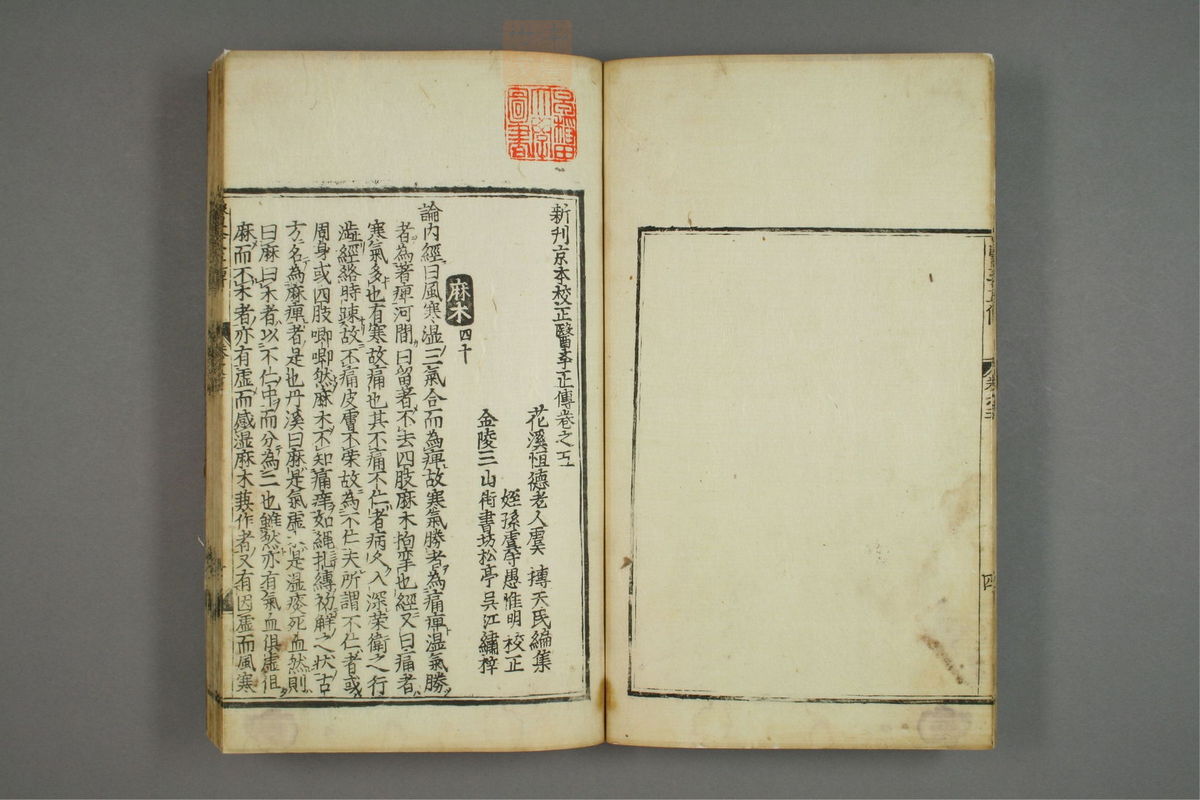 新刊京本校正醫學正傳卷之五
花溪恒德老人虞 摶天民編集
姪孫虞守愚惟明 校正
金陵三山街書坊松亭吳江繡梓
麻木 四十
論內經曰風寒濕三氣合而為痺故寒氣勝者為痛痺濕氣勝
者為著痺河間曰留著不去四肢麻木拘攣也經又曰痛者
寒氣多也有寒故痛也其不痛不仁者病久入深榮衛之行
澁經絡時踈故不痛皮膚不榮故為不仁夫所謂不仁者或
周身或四肢唧唧然麻木不知痛痒如繩扎縛初解之狀古
方名為麻痺者是也丹溪曰麻是氣虛木是濕痰死血然則
曰麻曰木者以不仁中而分為二也雖然亦有氣血俱虛但
麻而不木者亦有虛而感濕麻木兼作者又有因虛而風寒
早稻田
大學
圖書